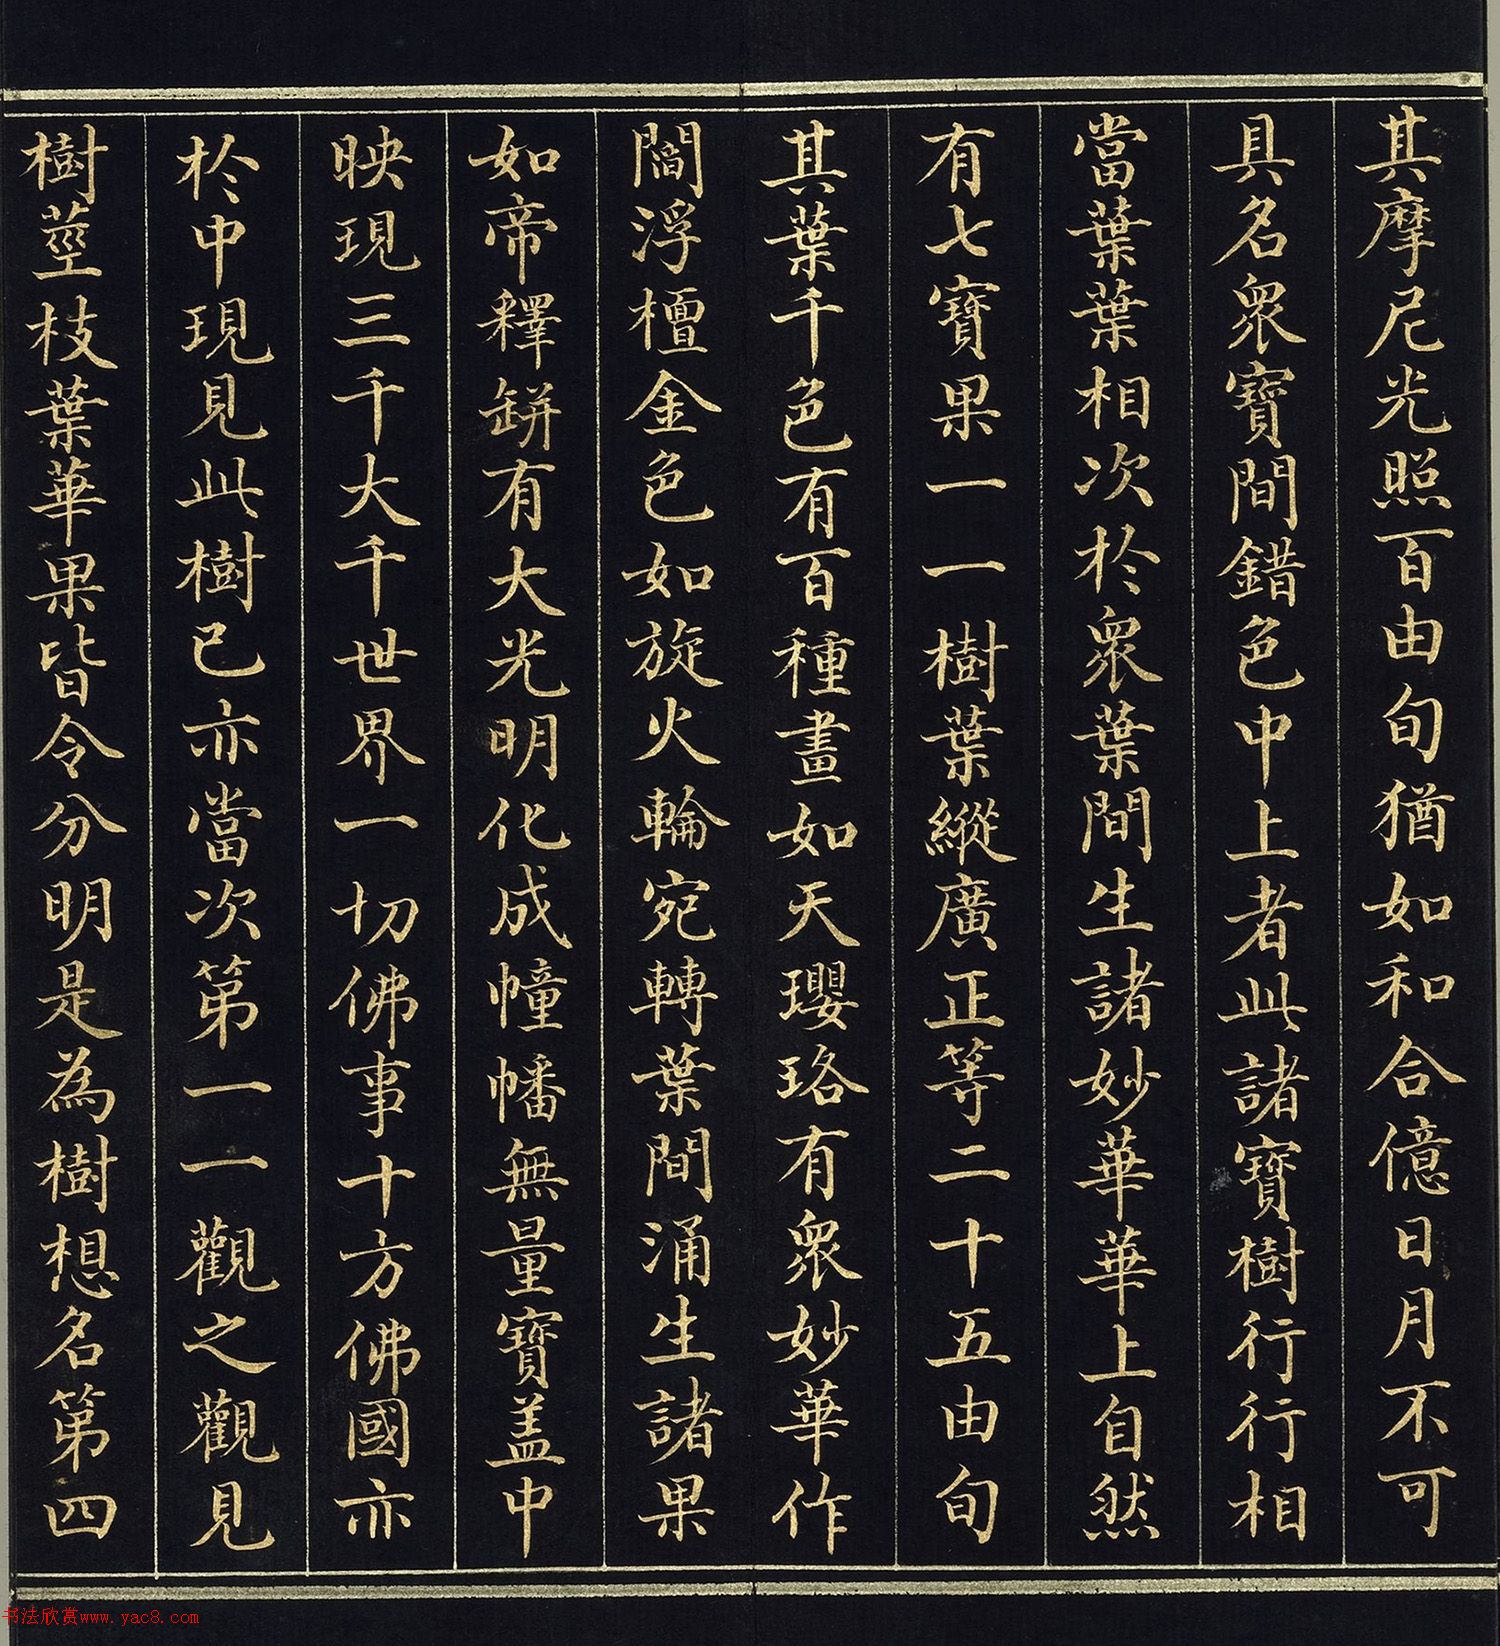 其摩尼光照百由旬猶如和合億日月不可
具名眾寶間錯色中上者此諸寶樹行行相
當葉葉相次於眾葉間生諸妙華華上自然
有七寶果一一樹葉縱廣正等二十五由旬
其葉千色有百種畫如天瓔珞有眾妙華作
閻浮檀金色如旋火輪宛轉葉間涌生諸果
如帝釋缾有大光明化成幢幡無量寶盖中
映現三千大千世界一切佛事十方佛國亦
於中現見此樹已亦當次第一一觀之觀見
樹莖枝葉華果皆令分明是為樹想名第四
书法欣赏www.yac8.com